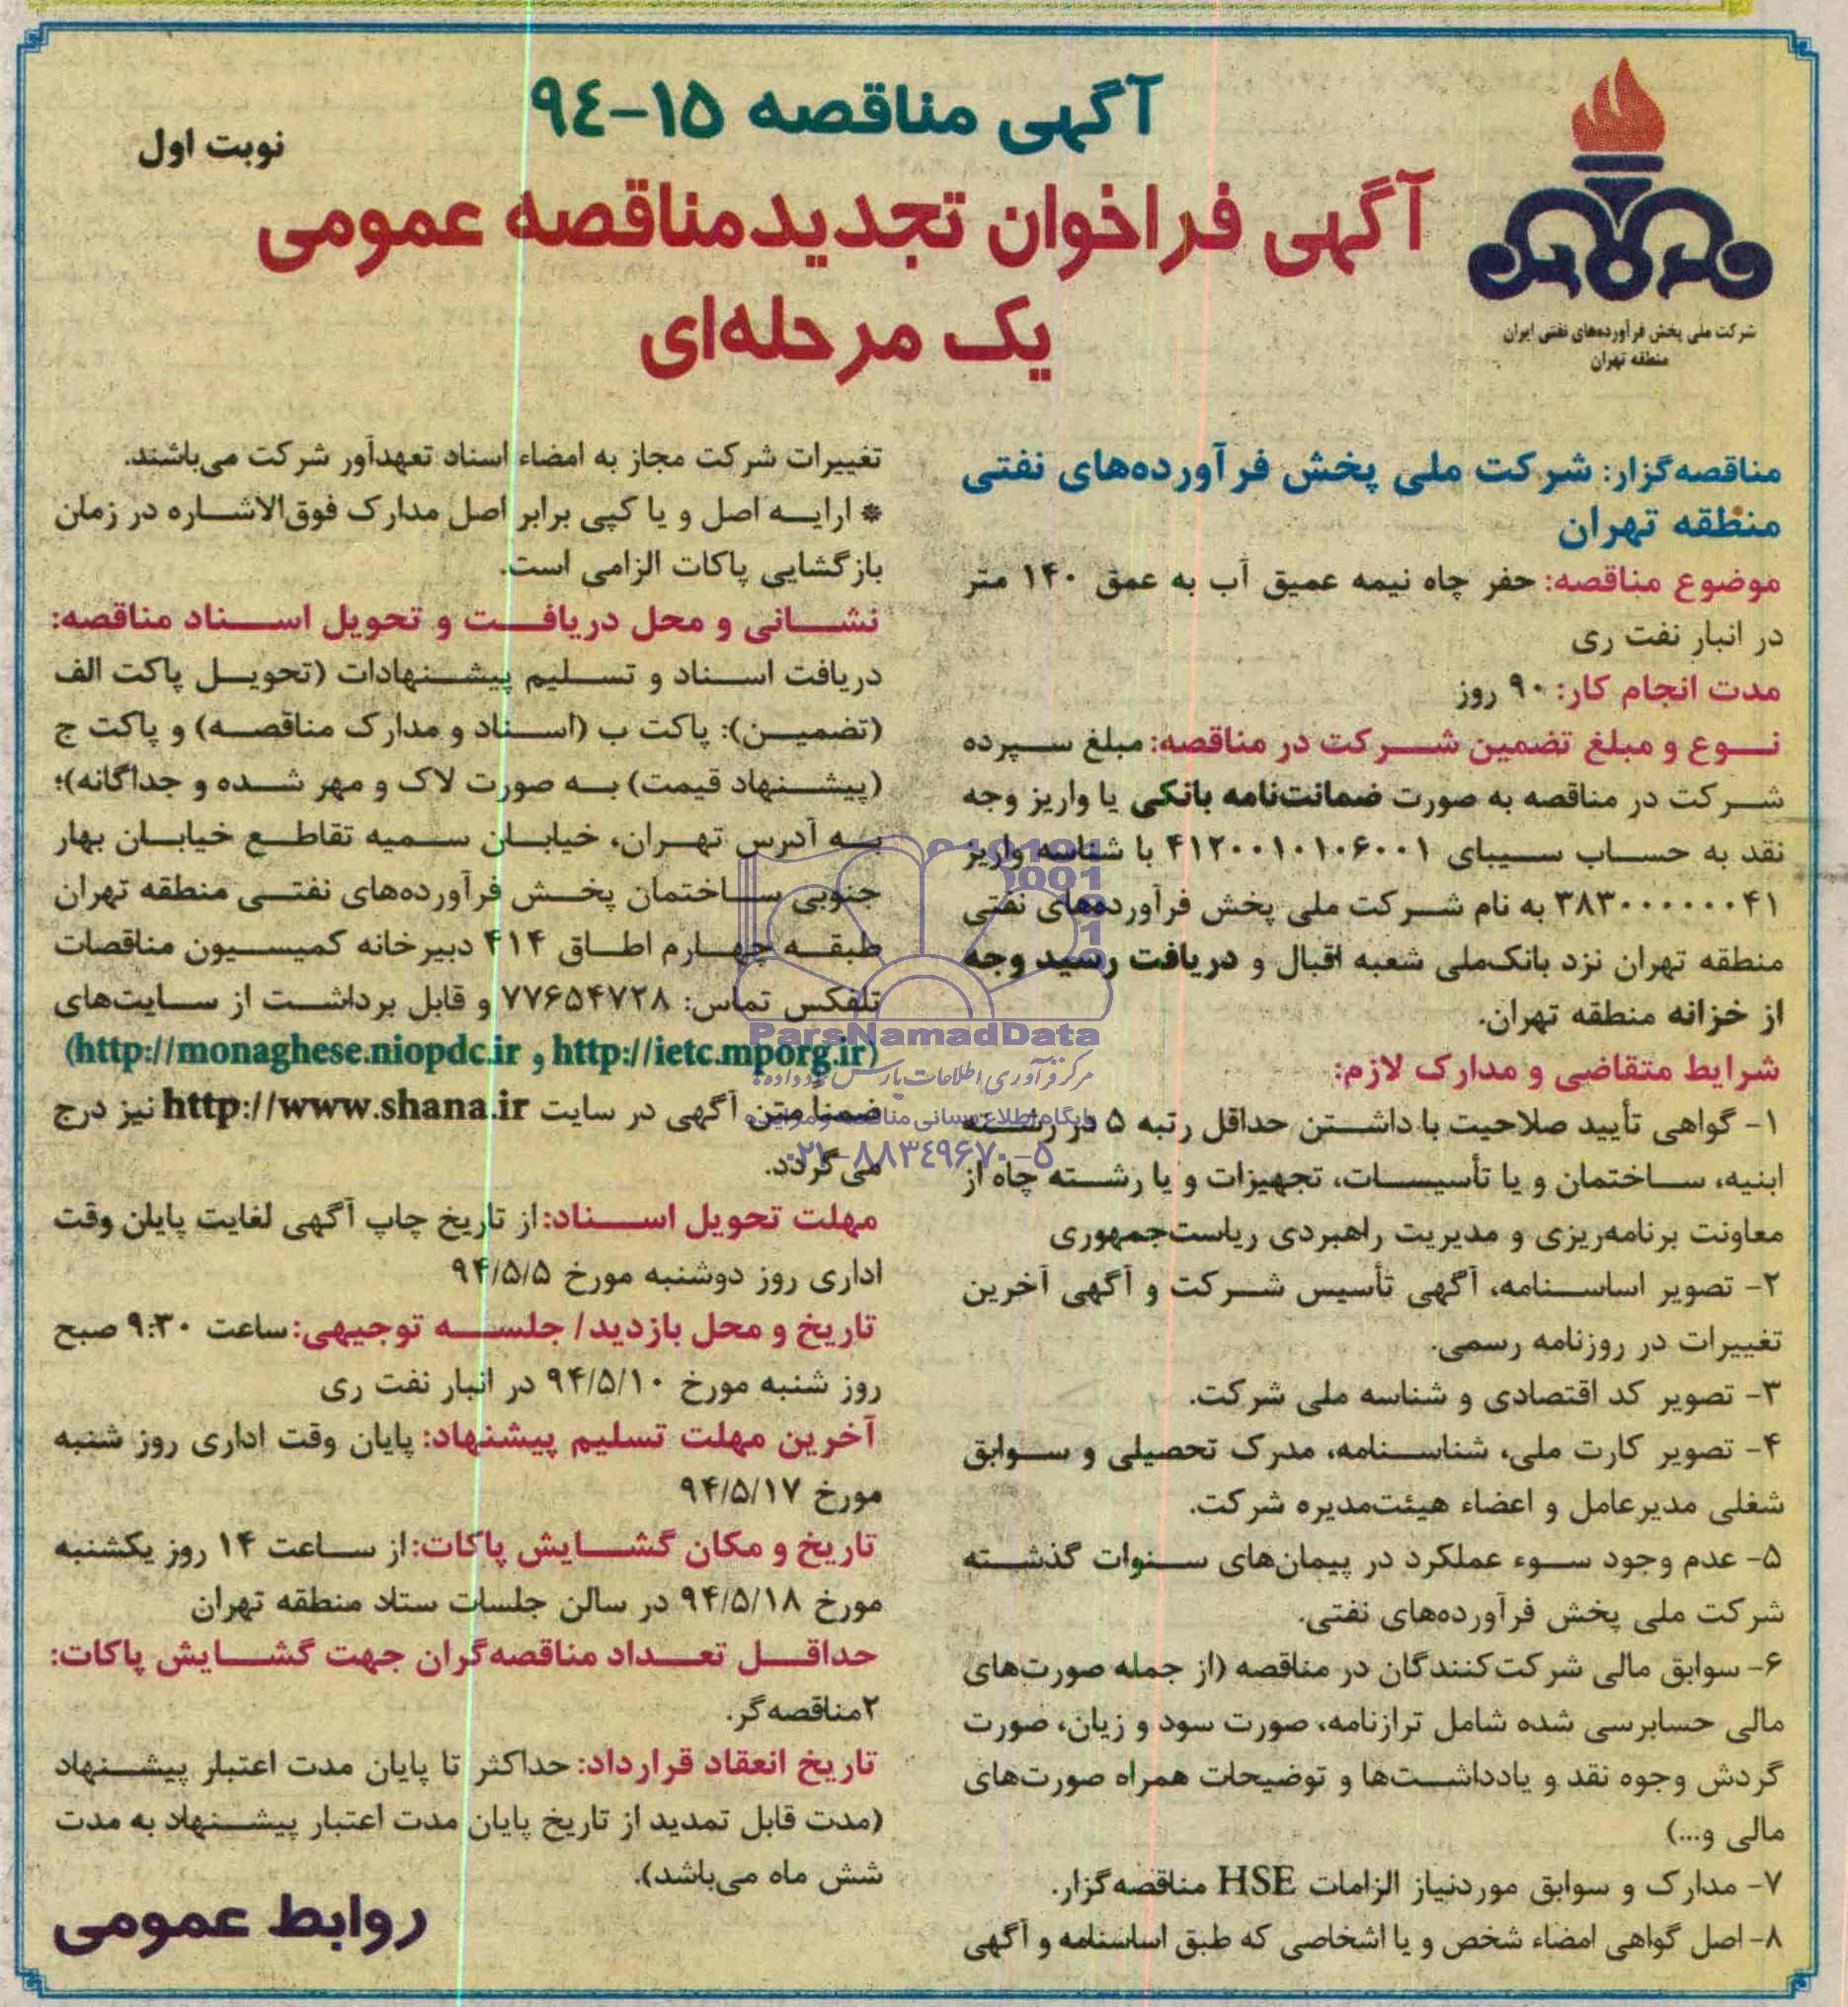 آگهی مناقصه ۱۵-۹٤
نوبت اول
آگهی فراخوان تجدیدمناقصه عمومی
یک مرحله‌ای
شرکت ملی پخش فرآورده‌های نفتی ایران
منطقه تهران
مناقصه‌گزار: شرکت ملی پخش فرآورده‌های نفتی
منطقه تهران
موضوع مناقصه: حفر چاه نیمه عمیق آب به عمق ۱۴۰ متر
در انبار نفت ری
مدت انجام کار: ۹۰ روز
نوع و مبلغ تضمین شرکت در مناقصه: مبلغ سپرده
شرکت در مناقصه به صورت ضمانت‌نامه بانکی یا واریز وجه
نقد به حساب سیبای ۴۱۲۰۰۱۰۱۰۶۰۰۱ با شناسه واریز
۳۸۳۰۰۰۰۰۰۰۴۱ به نام شرکت ملی پخش فرآورده‌های نفتی
منطقه تهران نزد بانک‌ملی شعبه اقبال و دریافت رسید وجه
از خزانه منطقه تهران.
شرایط متقاضی و مدارک لازم:
۱- گواهی تأیید صلاحیت با داشتن حداقل رتبه ۵ در رشته
ابنیه، ساختمان و یا تأسیسات، تجهیزات و یا رشته چاه از
معاونت برنامه‌ریزی و مدیریت راهبردی ریاست‌جمهوری
۲- تصویر اساسنامه، آگهی تأسیس شرکت و آگهی آخرین
تغییرات در روزنامه رسمی.
۳- تصویر کد اقتصادی و شناسه ملی شرکت.
۴- تصویر کارت ملی، شناسنامه، مدرک تحصیلی و سوابق
شغلی مدیرعامل و اعضاء هیئت‌مدیره شرکت.
۵- عدم وجود سوء عملکرد در پیمان‌های سنوات گذشته
شرکت ملی پخش فرآورده‌های نفتی.
۶- سوابق مالی شرکت‌کنندگان در مناقصه (از جمله صورت‌های
مالی حسابرسی شده شامل ترازنامه، صورت سود و زیان، صورت
گردش وجوه نقد و یادداشت‌ها و توضیحات همراه صورت‌های
مالی و...)
۷- مدارک و سوابق موردنیاز الزامات HSE مناقصه‌گزار.
۸- اصل گواهی امضاء شخص و یا اشخاصی که طبق اساسنامه و آگهی
تغییرات شرکت مجاز به امضاء اسناد تعهدآور شرکت می‌باشند.
* ارایه اصل و یا کپی برابر اصل مدارک فوق‌الاشاره در زمان
بازگشایی پاکات الزامی است.
نشانی و محل دریافت و تحویل اسناد مناقصه:
دریافت اسناد و تسلیم پیشنهادات (تحویل پاکت الف
(تضمین): پاکت ب (اسناد و مدارک مناقصه) و پاکت ج
(پیشنهاد قیمت) به صورت لاک و مهر شده و جداگانه)؛
به آدرس تهران، خیابان سمیه تقاطع خیابان بهار
جنوبی ساختمان پخش فرآورده‌های نفتی منطقه تهران
طبقه چهارم اطاق ۴۱۴ دبیرخانه کمیسیون مناقصات
تلفکس تماس: ۷۷۶۵۴۷۲۸ و قابل برداشت از سایت‌های
(http://monaghese.niopdc.ir و http://ietc.mporg.ir)
ضمنا متن آگهی در سایت http://www.shana.ir نیز درج
می‌گردد.
مهلت تحویل اسناد: از تاریخ چاپ آگهی لغایت پایان وقت
اداری روز دوشنبه مورخ ۹۴/۵/۵
تاریخ و محل بازدید/ جلسه توجیهی: ساعت ۹:۳۰ صبح
روز شنبه مورخ ۹۴/۵/۱۰ در انبار نفت ری
آخرین مهلت تسلیم پیشنهاد: پایان وقت اداری روز شنبه
مورخ ۹۴/۵/۱۷
تاریخ و مکان گشایش پاکات: از ساعت ۱۴ روز یکشنبه
مورخ ۹۴/۵/۱۸ در سالن جلسات ستاد منطقه تهران
حداقل تعداد مناقصه‌گران جهت گشایش پاکات:
۲مناقصه‌گر.
تاریخ انعقاد قرارداد: حداکثر تا پایان مدت اعتبار پیشنهاد
(مدت قابل تمدید از تاریخ پایان مدت اعتبار پیشنهاد به مدت
شش ماه می‌باشد).
روابط عمومی
ParsNamadData
مرکز فرآوری اطلاعات پارس نماد داده‌ها
پایگاه اطلاع رسانی مناقصه و مزایده
۰۲۱-۸۸۳۴۹۶۷۰-۵